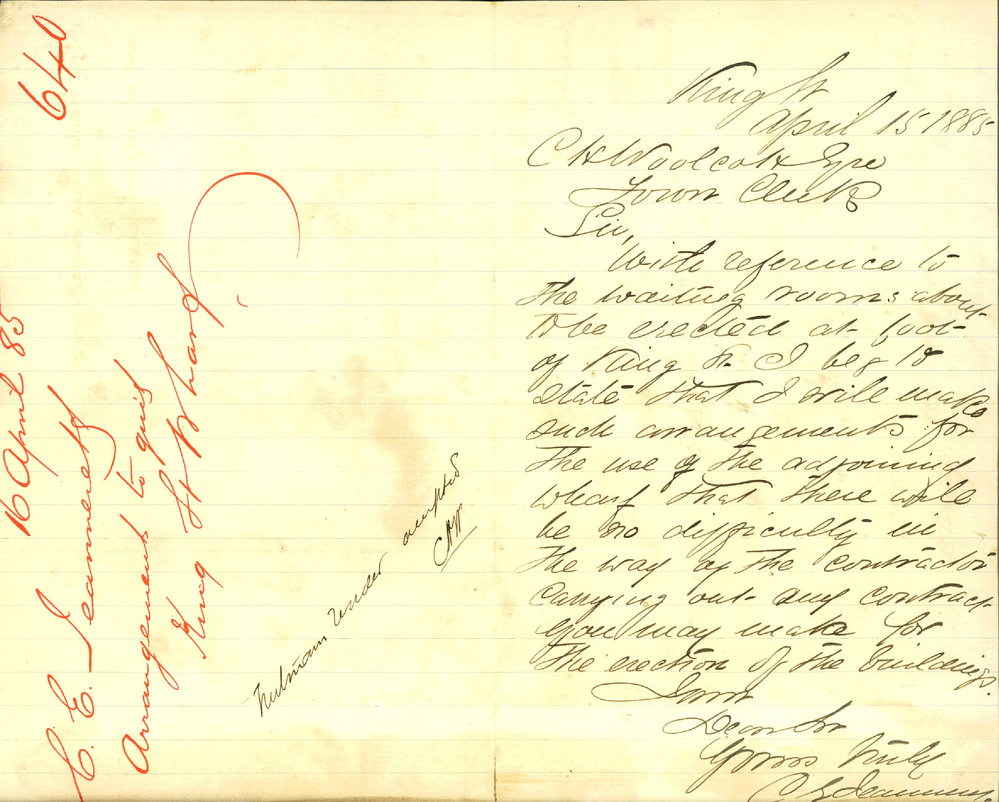 640
16 April 85
C. E. Jeanneret
Arrangement to quit
King St Wharf
tender accepted
CHW
King St
April 15 1885
C H Woolcott Esqre
Town Clerk
Sir,
With reference to
the waiting rooms about
to be erected at foot
of King St. I beg to
state that I will make
such arrangements for
the use of the adjoining
wharf that there will
be no difficulty in
the way of the contractor
carrying out any contract
you may make for
the erection of the buildings.
I am
Dear Sir
Yours truly
C E Jeanneret